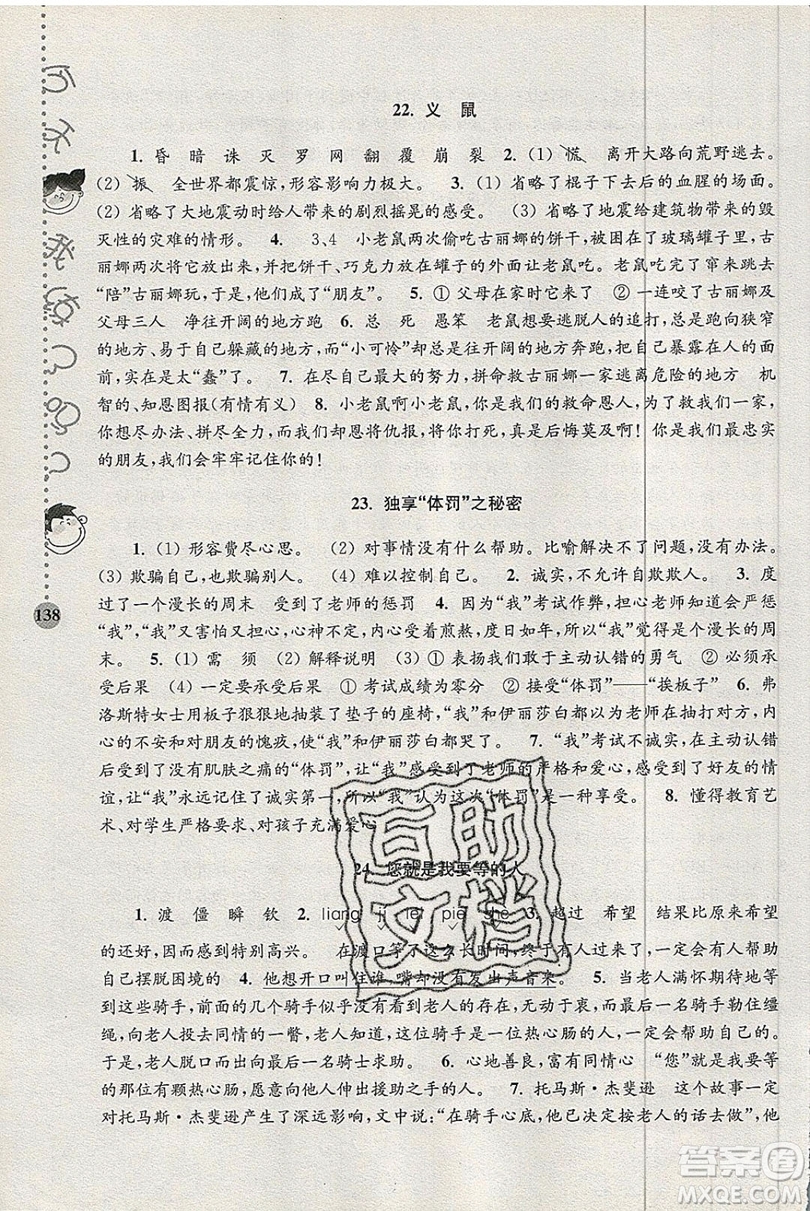 22. 义 鼠
1. 昏 暗 诛 灭 罗 网 翻 覆 崩 裂 2. (1) 慌 离开大路向荒野逃去。
(2) 振 全世界都震惊，形容影响力极大。 3. (1) 省略了棍子下去后的血腥的场面。
(2) 省略了大地震动时给人带来的剧烈摇晃的感受。 (3) 省略了地震给建筑物带来的毁
灭性的灾难的情形。 4. 3、4 小老鼠两次偷吃古丽娜的饼干，被困在了玻璃罐子里，古
丽娜两次将它放出来，并把饼干、巧克力放在罐子的外面让老鼠吃。老鼠吃完了窜来跳去，
“陪”古丽娜玩，于是，他们成了“朋友”。 5. ① 父母在家时它来了 ② 一连咬了古丽娜及
父母三人 净往开阔的地方跑 6. 总 死 愚笨 老鼠想要逃脱人的追打，总是跑向狭窄
的地方、易于自己躲藏的地方，而“小可怜”却总是往开阔的地方奔跑，把自己暴露在人的面
前，实在是太“蠢”了。 7. 尽了自己最大的努力，拼命救古丽娜一家逃离危险的地方 机
智的、知恩图报（有情有义） 8. 小老鼠啊小老鼠，你是我们的救命恩人，救了我们一家，
你想尽办法、拼尽全力，而我们却恩将仇报，将你打死，真是后悔莫及啊！你是我们最忠实
的朋友，我们会牢牢记住你的！
23. 独享“体罚”之秘密
1. (1) 形容费尽心思。 (2) 对事情没有什么帮助。比喻解决不了问题，没有办法。
(3) 欺骗自己，也欺骗别人。 (4) 难以控制自己。 2. 诚实，不允许自欺欺人。 3. 度
过了一个漫长的周末 受到了老师的惩罚 4. 因为“我”考试作弊，担心老师知道会严惩
“我”，“我”又害怕又担心，心神不定，内心受着煎熬，所以“我”觉得这是个漫长的周
末。 5. (1) 需 须 (2) 解释说明 (3) ① 表扬我们敢于主动认错的勇气 ② 主动承
受后果 (4) 一定要承受后果 ① 考试成绩为零分 ② 接受“体罚”——“挨板子” 6. 弗
洛斯特女士用板子狠狠地抽装了垫子的座椅，“我”和伊丽莎白都以为老师在抽打对方，内心
的不安和对朋友的愧疚，使“我”和伊丽莎白都哭了。 7. “我”考试不诚实，在主动认错
后受到了没有肌肤之痛的“体罚”，让“我”感受到了老师的严格和爱心，感受到了朋友的情
谊，让“我”永远记住了诚实第一，所以“我”认为这次“体罚”是一种享受。 8. 懂得教育艺
术、对学生严格要求、对孩子充满爱心
24. 您就是我要等的人
1. 渡 僵 瞬 钦 2. liang ji lei pie she 3. 超过 希望 结果比原来希望
的还好，因而感到特别高兴。 在渡口等了这么长时间，等的就是您，一定会有人帮助
自己摆脱困境的 4. 他想开口叫住谁，嘴却没发出声音来。 5. 当老人满怀期待地等
到这些骑手，前面的几个骑手似乎没有看到老人的存在，无动于衷，而最后一名骑手勒住缰
绳，向老人投去同情的一瞥，老人知道，这位骑手一定是一位热心肠的人，可以帮助他过河，
于是，老人脱口而出向最后一名骑士求助。 6. 心地善良，富有同情心 “您”就是我要等
的那位有热心肠，能伸出援助之手的人。 7. 托马斯·杰斐逊 这个故事一定
对托马斯·杰斐逊产生了深远影响，文中说：“在骑手心底，他已决定按老人的话去做”，他
138
互助
文档
答案圈
MXQE.COM